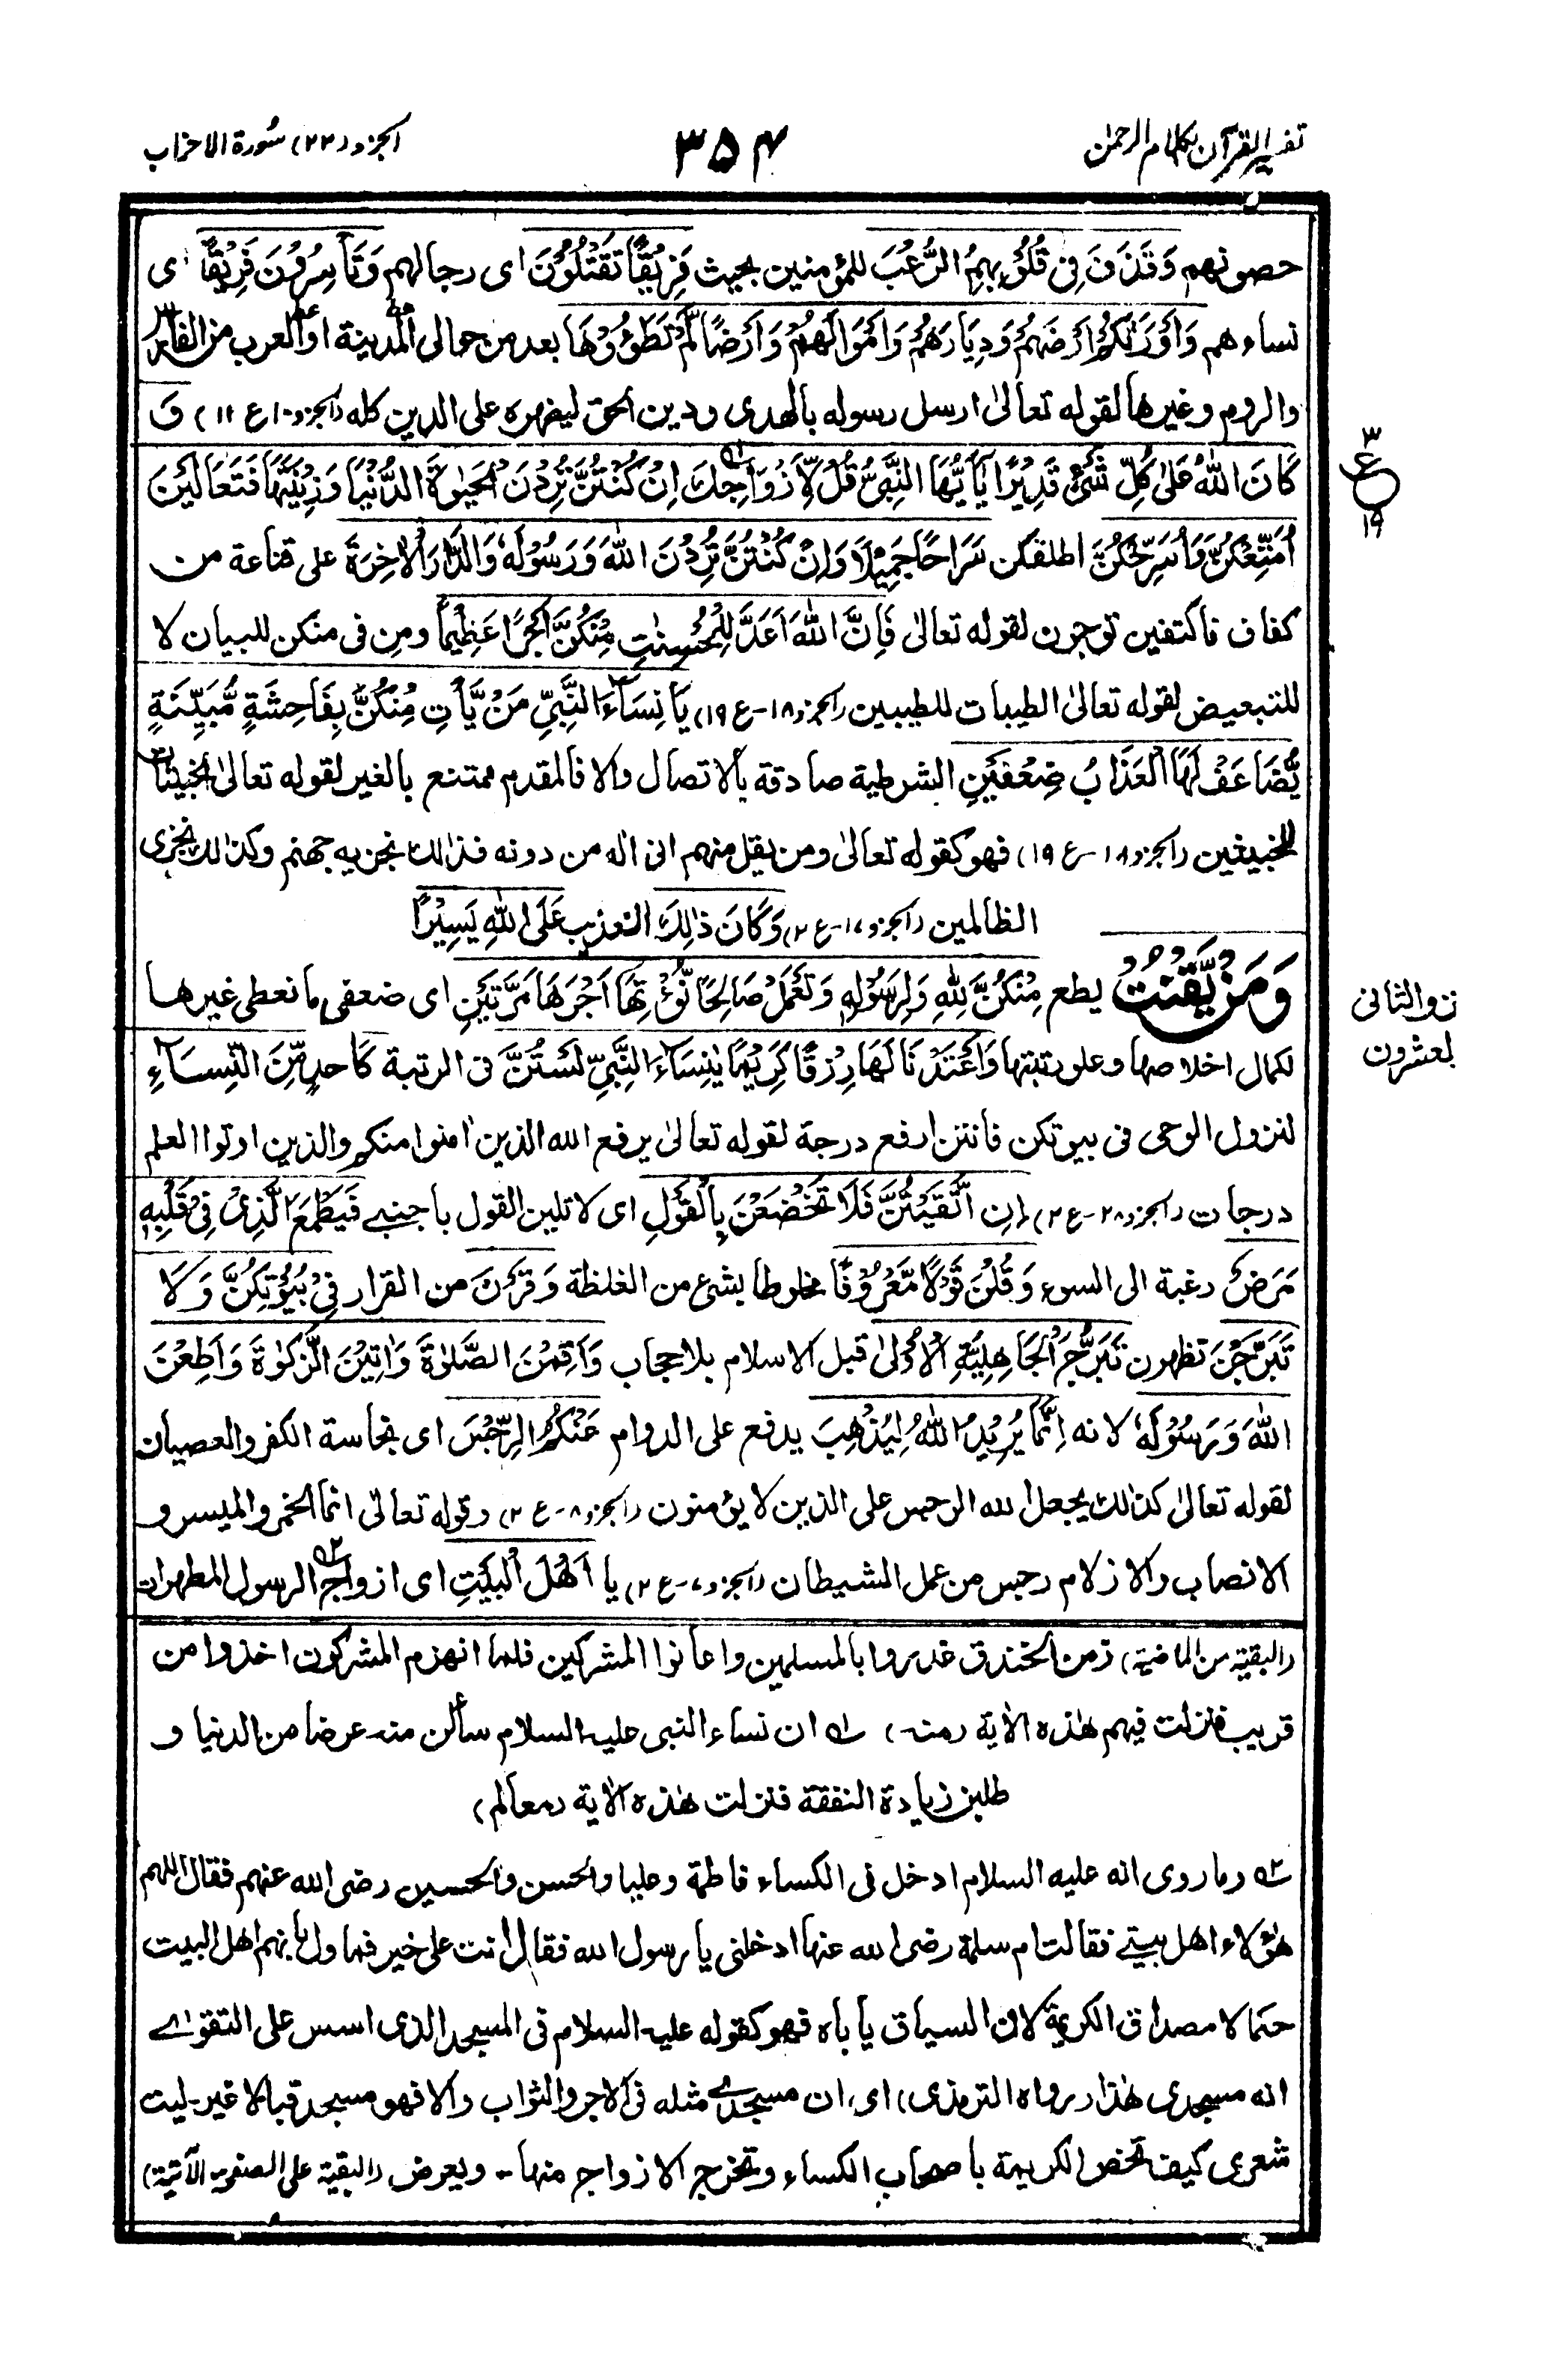 تفسير القرآن بكلام الرحمن
٣٥٤
الجزء (٢٢) سورة الاحزاب
حصونهم وَقَذَفَ فِىْ قُلُوْبِهِمُ الرُّعْبَ للمؤمنين بحيث فَرِيْقًا تَقْتُلُوْنَ اى رجالهم وَتَأْسِرُوْنَ فَرِيْقًا اى
نساءهم وَاَوْرَثَكُمْ اَرْضَهُمْ وَدِيَارَهُمْ وَاَمْوَالَهُمْ وَاَرْضًا لَّمْ تَطَؤُوْهَا بعد من حوالى المدينة او العرب من الفارس
والروم وغيرها لقوله تعالىٰ ارسل رسوله بالهدى ودين الحق ليظهره على الدين كله (الجزء ١٠ ع ١١) وَ
كَانَ اللّٰهُ عَلٰى كُلِّ شَىْءٍ قَدِيْرًا يَا اَيُّهَا النَّبِىُّ قُلْ لِّاَزْوَاجِكَ اِنْ كُنْتُنَّ تُرِدْنَ الْحَيٰوةَ الدُّنْيَا وَزِيْنَتَهَا فَتَعَالَيْنَ
اُمَتِّعْكُنَّ وَاُسَرِّحْكُنَّ اطلقكن سَرَاحًا جَمِيْلًا وَاِنْ كُنْتُنَّ تُرِدْنَ اللّٰهَ وَرَسُوْلَهٗ وَالدَّارَ الْاٰخِرَةَ على قناعة من
كفاف فاكتفين توجرن لقوله تعالىٰ فَاِنَّ اللّٰهَ اَعَدَّ لِلْمُحْسِنٰتِ مِنْكُنَّ اَجْرًا عَظِيْمًا ومن فى منكن للبيان لا
للتبعيض لقوله تعالىٰ الطيبات للطيبين (الجزء ١٨ - ع ١٩) يَا نِسَاءَ النَّبِىِّ مَنْ يَّأْتِ مِنْكُنَّ بِفَاحِشَةٍ مُّبَيِّنَةٍ
يُّضَاعَفْ لَهَا الْعَذَابُ ضِعْفَيْنِ الشرطية صادقة بالاتصال والا فالمقدم ممتنع بالغير لقوله تعالىٰ الخبيثات
للخبيثين (الجزء ١٨ - ع ١٩) فهو كقوله تعالىٰ ومن يقل منهم انى اله من دونه فذالك نجزيه جهنم وكذالك نجزى
الظالمين (الجزء ١٧ - ع ٢) وَكَانَ ذٰلِكَ التعذيب عَلَى اللّٰهِ يَسِيْرًا
وَمَنْ يَّقْنُتْ يطع مِنْكُنَّ لِلّٰهِ وَلِرَسُوْلِهٖ وَتَعْمَلْ صَالِحًا نُّؤْتِهَا اَجْرَهَا مَرَّتَيْنِ اى ضعفى ما نعطى غيرها
لكمال اخلاصها وعلو رتبتها وَاَعْتَدْنَا لَهَا رِزْقًا كَرِيْمًا يٰنِسَاءَ النَّبِىِّ لَسْتُنَّ فى الرتبة كَاَحَدٍ مِّنَ النِّسَاءِ
لنزول الوحى فى بيوتكن فانتن ارفع درجة لقوله تعالىٰ يرفع الله الذين اٰمنوا منكم والذين اوتوا العلم
درجات (الجزء ٢٨ - ع ٢) اِنِ اتَّقَيْتُنَّ فَلَا تَخْضَعْنَ بِالْقَوْلِ اى لا تلين القول باجنبى فَيَطْمَعَ الَّذِىْ فِىْ قَلْبِهٖ
مَرَضٌ رغبة الى السوء وَقُلْنَ قَوْلًا مَّعْرُوْفًا مخلوطا بشئ من الغلظة وَقَرْنَ من القرار فِىْ بُيُوْتِكُنَّ وَلَا
تَبَرَّجْنَ تظهرن تَبَرُّجَ الْجَاهِلِيَّةِ الْاُوْلٰى قبل الاسلام بلا حجاب وَاَقِمْنَ الصَّلٰوةَ وَاٰتِيْنَ الزَّكٰوةَ وَاَطِعْنَ
اللّٰهَ وَرَسُوْلَهٗ لانه اِنَّمَا يُرِيْدُ اللّٰهُ لِيُذْهِبَ يدفع على الدوام عَنْكُمُ الرِّجْسَ اى نجاسة الكفر والعصيان
لقوله تعالىٰ كذالك يجعل الله الرجس على الذين لا يؤمنون (الجزء ٨ - ع ٢) وقوله تعالىٰ انما الخمر والميسر و
الانصاب والازلام رجس من عمل الشيطان (الجزء ٧ - ع ٢) يا اَهْلَ الْبَيْتِ اى ازواج الرسول المطهرات
(البقية من الماضية) زمن الخندق غدروا بالمسلمين واعانوا المشركين فلما انهزم المشركون اخذوا من
قريب فنزلت فيهم هٰذه الاٰية (منه) ١ه ان نساء النبى عليه السلام سألن منه عرضا من الدنيا و
طلبن زيادة النفقة فنزلت هٰذه الاٰية (معالم)
٢ه وما روى انه عليه السلام ادخل فى الكساء فاطمة وعليا والحسن والحسين رضى الله عنهم فقال اللهم
هٰؤلاء اهل بيتى فقالت ام سلمة رضى الله عنها ادخلنى يا رسول الله فقال انت على خير فماول بانهم اهل البيت
حكما لا مصداق الكريمة لان السياق ياباه فهو كقوله عليه السلام فى المسجد الذى اسس على التقوىٰ
انه مسجدى هٰذا (رواه الترمذى) اى ان مسجدى مثله فى الاجر والثواب والا فهو مسجد قبا لا غير - ليت
شعرى كيف تخص الكريمة باصحاب الكساء وتخرج الازواج منها - ويعرض (البقية على الصفحة الآتية)
٣
ع
١٩
الجزء الثانى
والعشرون